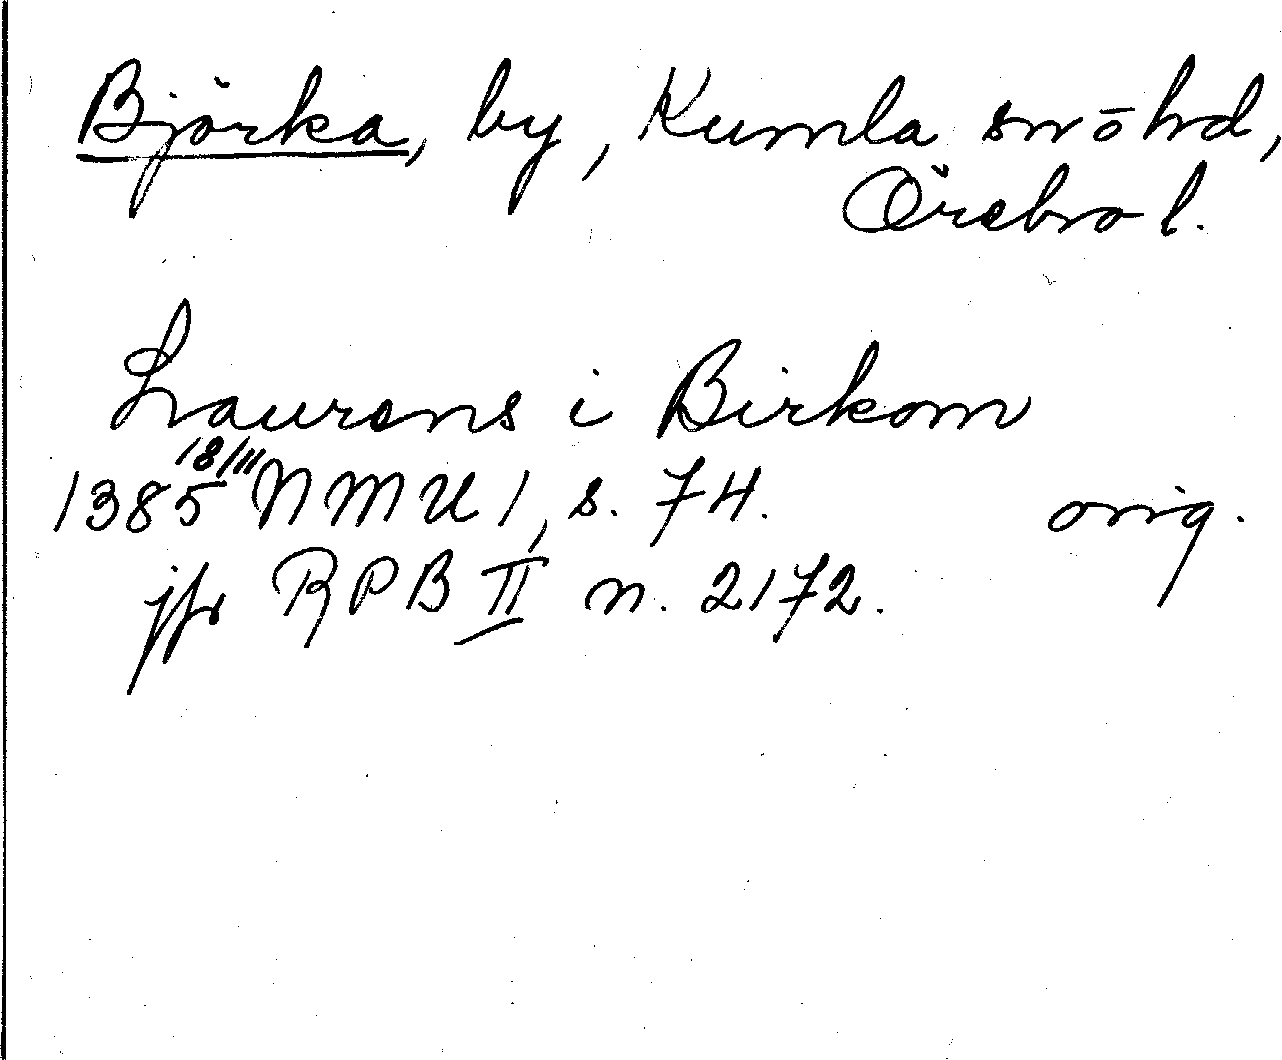 Björka, by, Kumla snōhd,
Örebro l.
Laurens i Birkom
1385 18/11 NMU 1, s. 74. orig.
jfr RPB II n. 2172.